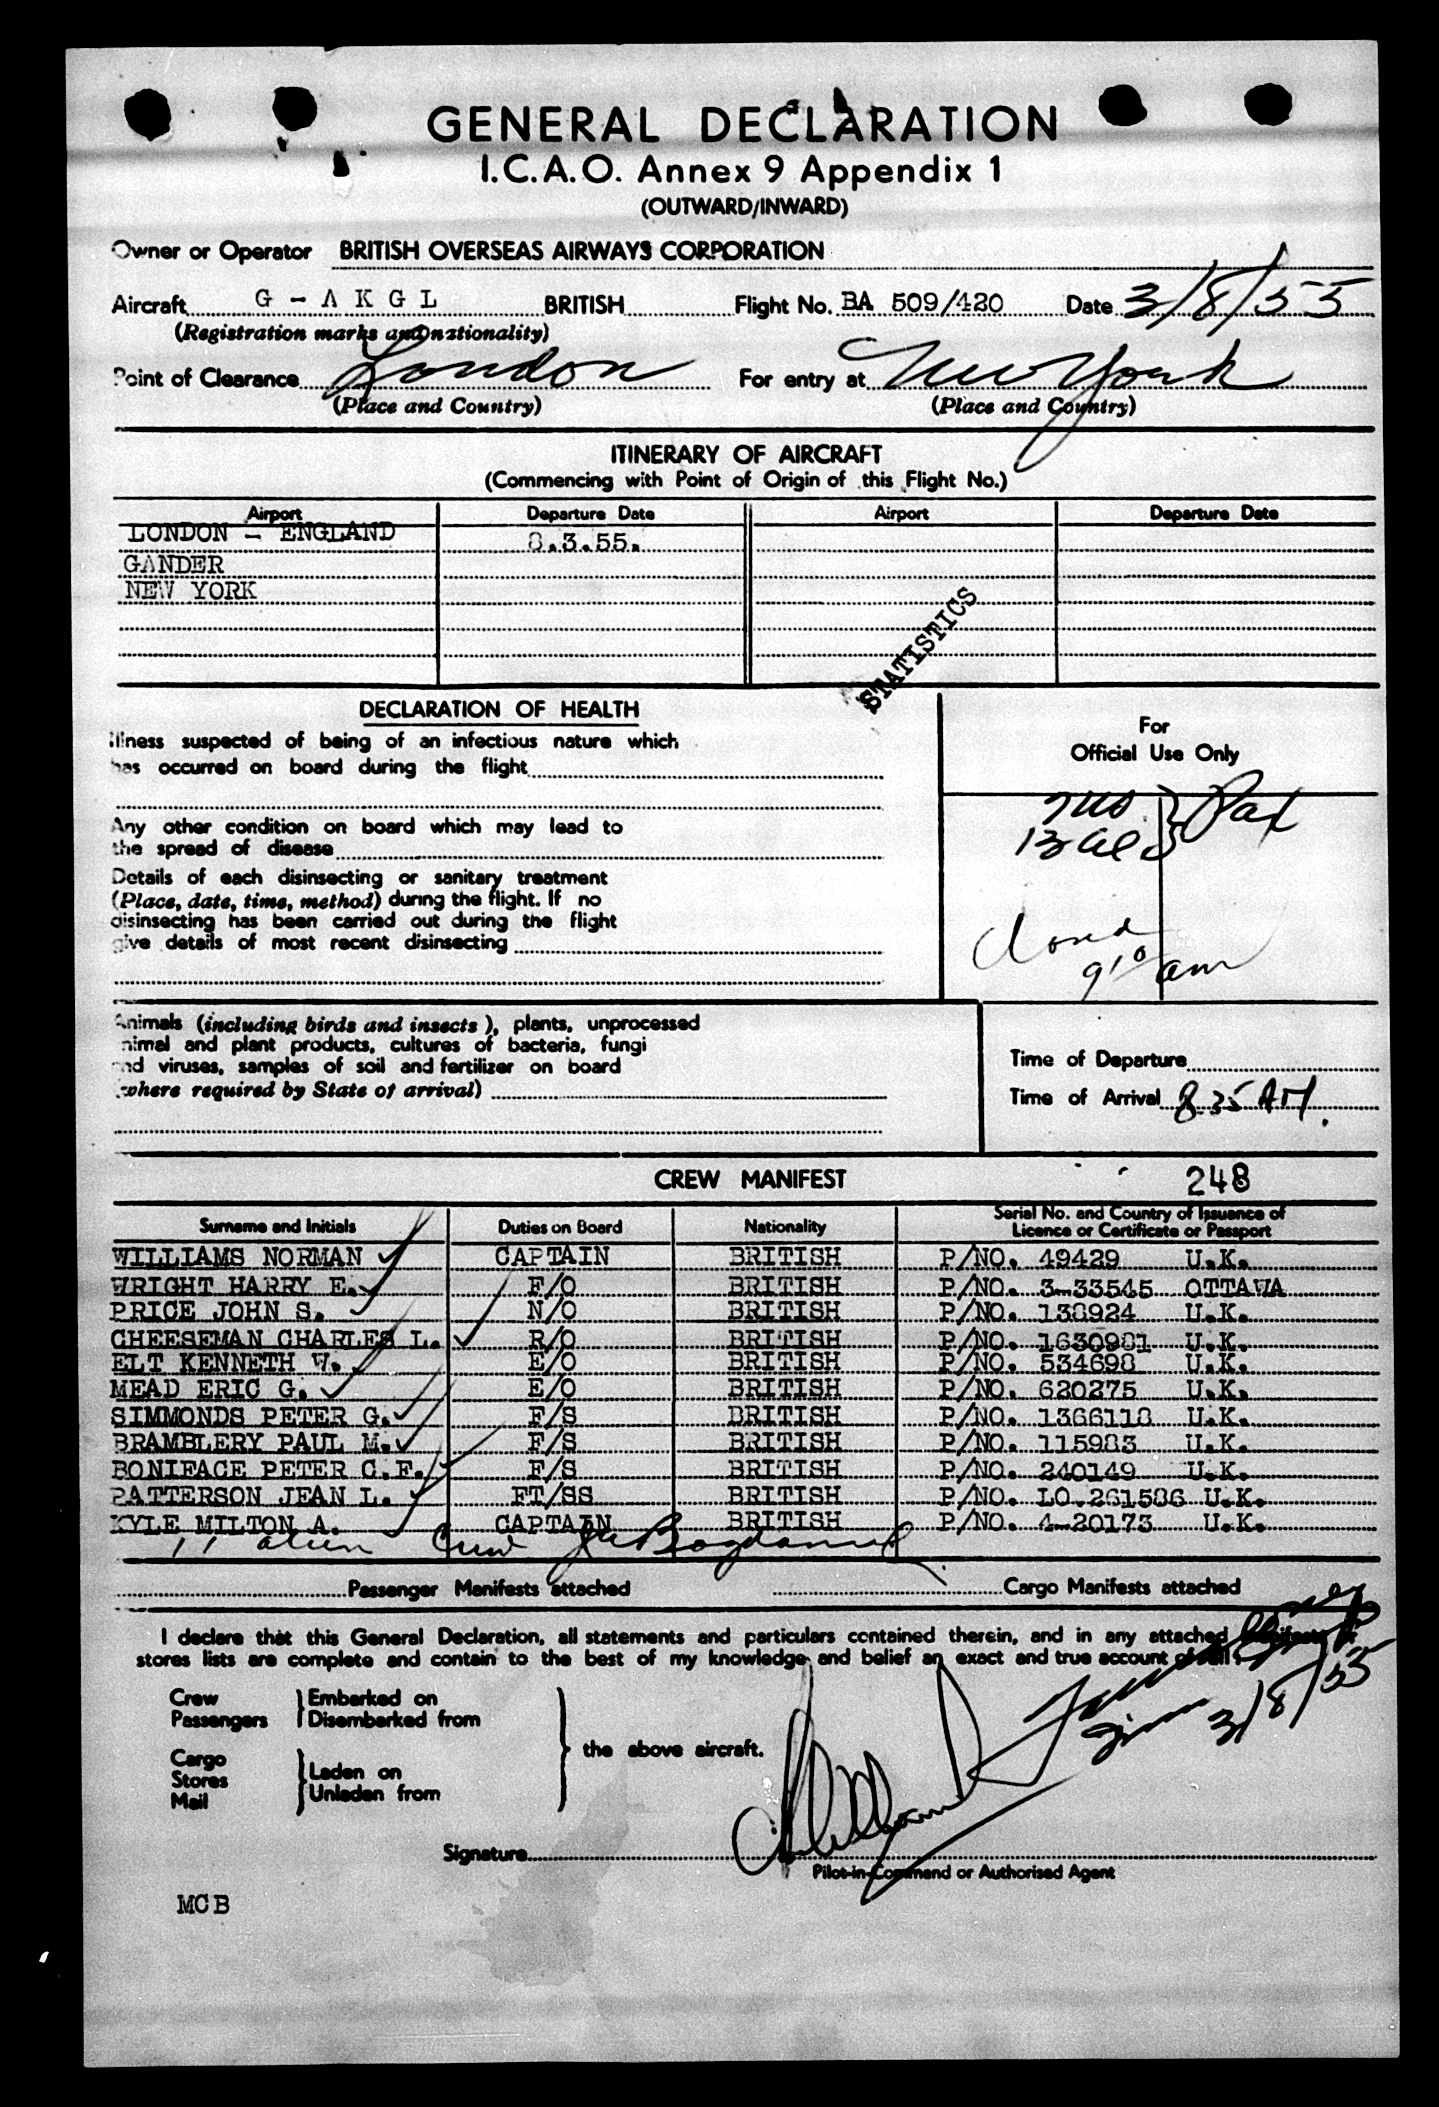 GENERAL DECLARATION
I.C.A.O. Annex 9 Appendix 1
(OUTWARD/INWARD)
Owner or Operator BRITISH OVERSEAS AIRWAYS CORPORATION
Aircraft G - A K G L BRITISH Flight No. BA 509/420 Date 3/8/55
(Registration marks and nationality)
Point of Clearance London For entry at New York
(Place and Country) (Place and Country)
ITINERARY OF AIRCRAFT
(Commencing with Point of Origin of this Flight No.)
Airport Departure Date Airport Departure Date
LONDON - ENGLAND 8.3.55.
GANDER
NEW YORK
STATISTICS
DECLARATION OF HEALTH
Illness suspected of being of an infectious nature which
has occurred on board during the flight
Any other condition on board which may lead to
the spread of disease
Details of each disinsecting or sanitary treatment
(Place, date, time, method) during the flight. If no
disinsecting has been carried out during the flight
give details of most recent disinsecting
For
Official Use Only
Pax
closed
9 10 am
Animals (including birds and insects), plants, unprocessed
animal and plant products, cultures of bacteria, fungi
and viruses, samples of soil and fertilizer on board
(where required by State of arrival)
Time of Departure
Time of Arrival 8 35 AM.
CREW MANIFEST 248
Surname and Initials Duties on Board Nationality Serial No. and Country of Issuance of Licence or Certificate or Passport
WILLIAMS NORMAN CAPTAIN BRITISH P/NO. 49429 U.K.
WRIGHT HARRY E. F/O BRITISH P/NO. 3-33545 OTTAWA
PRICE JOHN S. N/O BRITISH P/NO. 138924 U.K.
CHEESEMAN CHARLES L. R/O BRITISH P/NO. 1630981 U.K.
ELT KENNETH W. E/O BRITISH P/NO. 534698 U.K.
MEAD ERIC G. E/O BRITISH P/NO. 620275 U.K.
SIMMONDS PETER G. F/S BRITISH P/NO. 1366118 U.K.
BRAMBLERY PAUL M. F/S BRITISH P/NO. 115983 U.K.
BONIFACE PETER C.F. F/S BRITISH P/NO. 240149 U.K.
PATTERSON JEAN L. FT/SS BRITISH P/NO. LO.261586 U.K.
KYLE MILTON A. CAPTAIN BRITISH P/NO. 4-20173 U.K.
11 alien Crew
Passenger Manifests attached Cargo Manifests attached
I declare that this General Declaration, all statements and particulars contained therein, and in any attached
stores lists are complete and contain to the best of my knowledge and belief an exact and true account of all
3/8/55
Crew Embarked on
Passengers Disembarked from
the above aircraft.
Cargo
Stores Laden on
Mail Unladen from
Signature
Pilot-in-Command or Authorised Agent
MCB